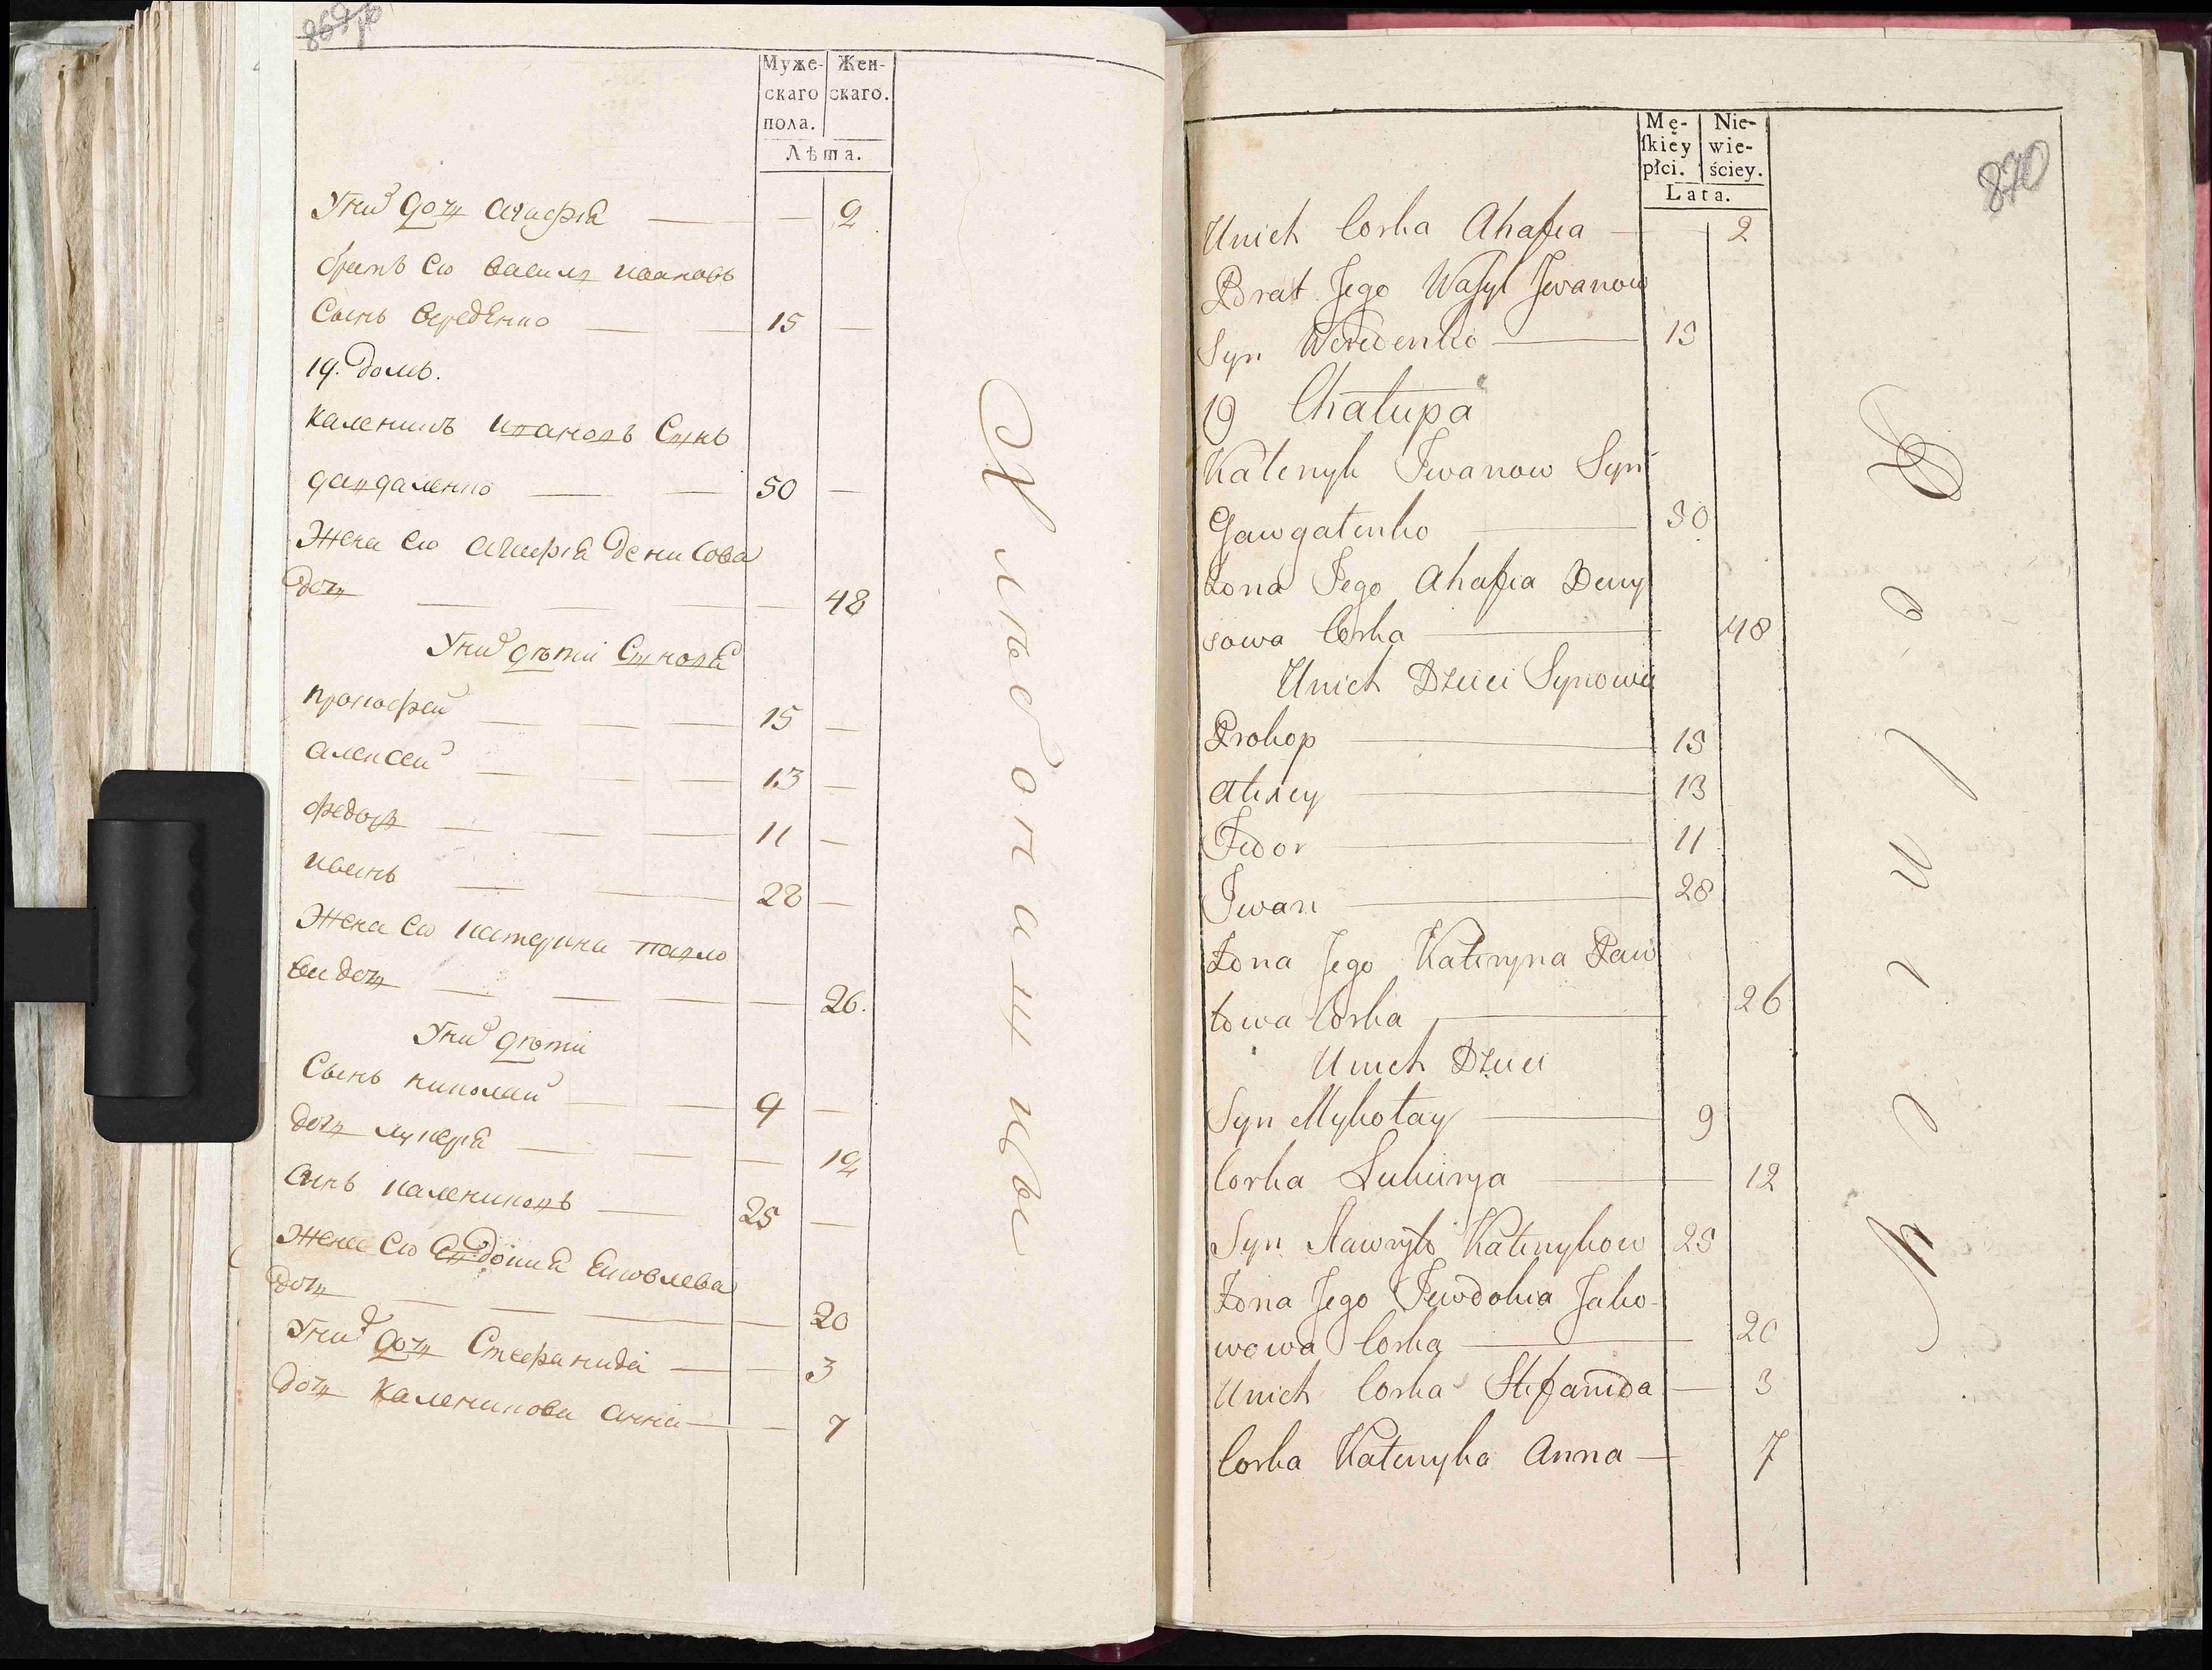 Муже- Жен-
скаго скаго.
пола.
Лѣта.
Уних дочь Агафiя — — 2
братъ Его Василь Ивановъ
Сынъ Середенко — — 15 —
19. домъ.
Каленикъ Ивановъ Сынъ
Гавгаленко — — 50 —
Жена Его Агафiя Денисова
дочь — — — — 48
Уних дѣти Сыновя
Прокофей — — — 15 —
Алексей — — — 13 —
Федоръ — — — 11 —
Иванъ — — 28 —
Жена Его Катерина Павло
ва дочь — — — — 26.
Уних дѣти
Сынъ Николай — — 9 —
дочь Лукеря — — — 12
Синъ Калениковъ — 25 —
Жена Его Евдокия Яковлева
дочь — — — 20
Уних дочь Стефанида — — 3
дочь Каленикова Анна — — 7
Хлѣбопашцы
Mę- Nie-
ſkiey wie-
płci. ściey.
Lata.
870
Unich Corka Ahafia — 2
Brat Jego Wasyl Jwanow
Syn Weredenko — 15
19 Chałupa
Kałenyk Jwanow Syn
Gawgałenko — 50
Żona Jego Ahafia Deny
sowa Corka — 48
Unich Dzieci Synowie
Prokop — 15
Alexey — 13
Fedor — 11
Jwan — 28
Żona Jego Kateryna Paw
łowa Corka — 26
Unich Dzieci
Syn Mykołay — 9
Corka Łukirya — 12
Syn Hawryło Kałenykow 25
Żona Jego Jewdokia Jako-
wowa Corka — 20
Unich Corka Stefanida — 3
Corka Kałenyka Anna — 7
Rolnicy